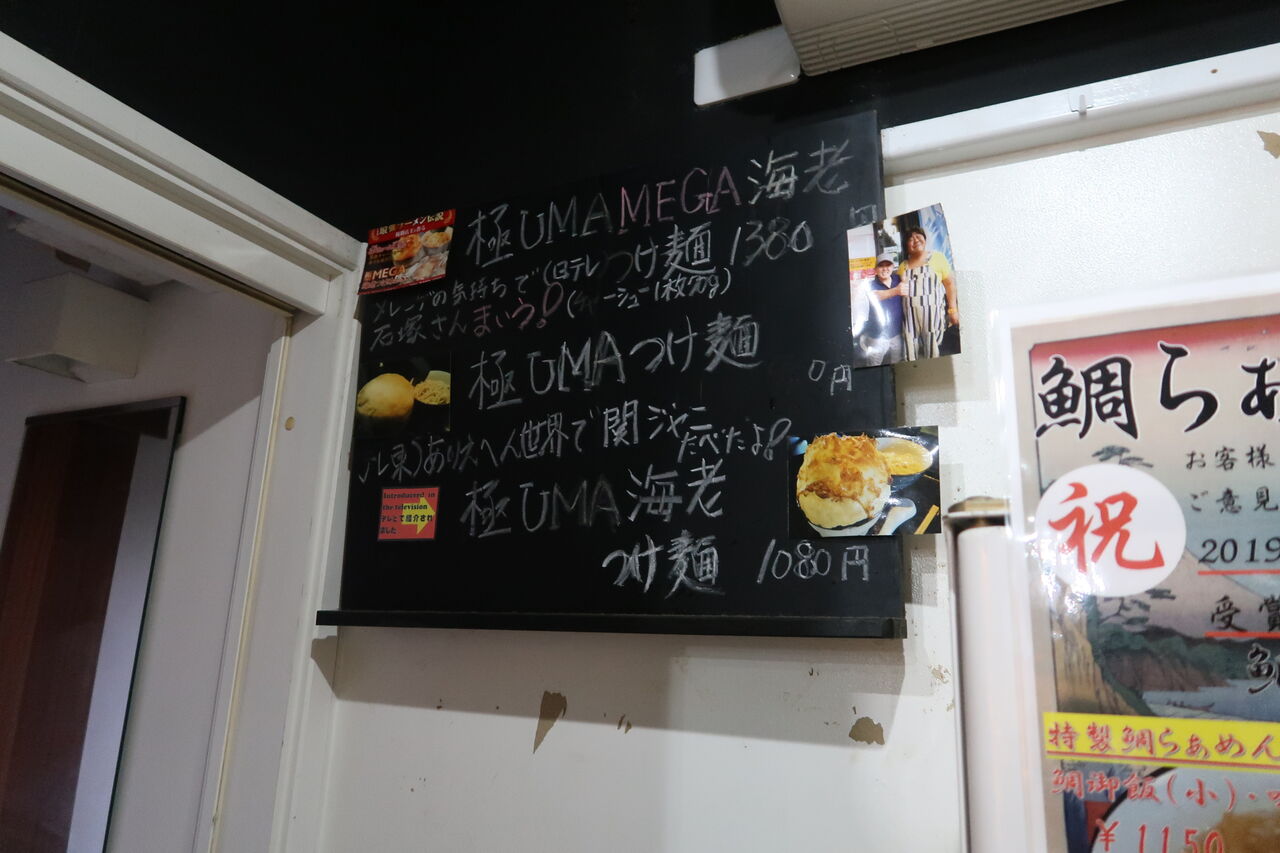 極UMAMEGA海老
つけ麺 1380円
メレンゲの気持ちで(日テレ
石塚さんまいう!(チャーシュー1枚70g)
極UMAつけ麺
0円
テレ東)ありえへん世界で関ジャニ
たべたよ!
極UMA海老
つけ麺 1080円
最強ラーメン伝説
MEGA
Introduced in
the television
テレビで紹介され
ました
鯛らあ
お客様
ご意見
祝
2019
受賞
特製鯛らあめん
鯛御飯(小)・
¥1150